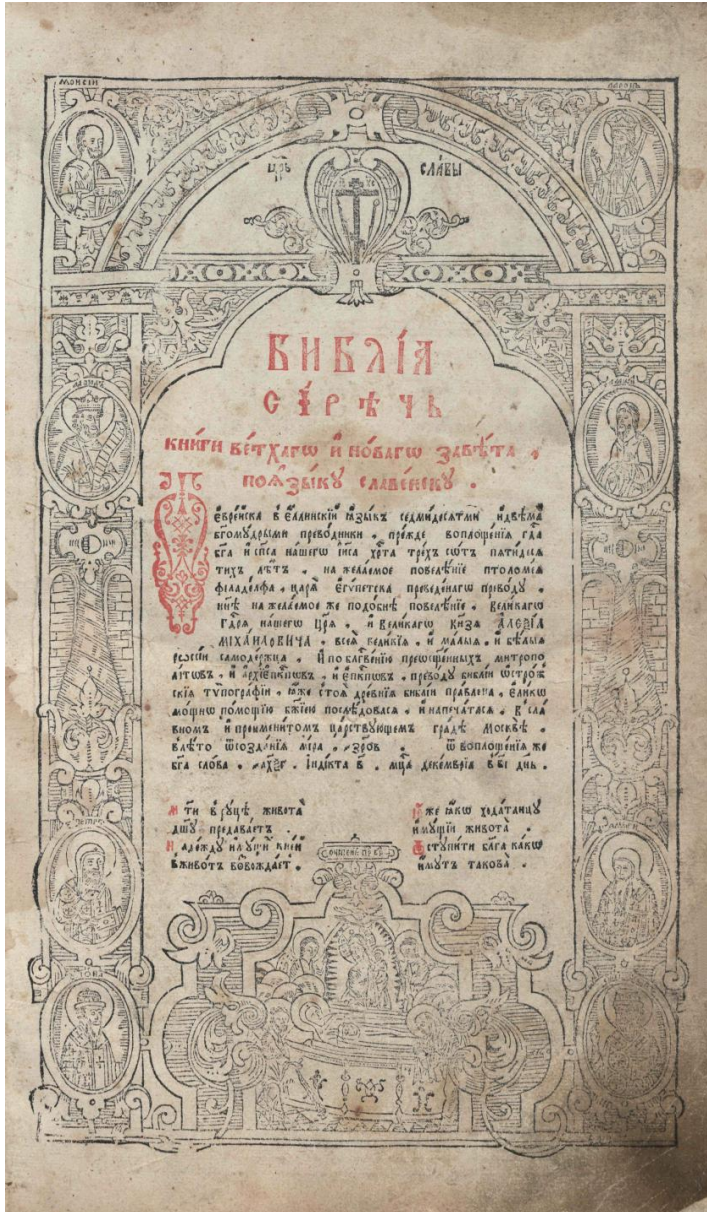 МОѴСІЙ
ЦР҃Ь СЛА́ВЫ
БИБЛІ́А
СІ́РѢЧЬ
КНИ́ГИ ВЕ́ТХАГѠ И҆ НО́ВАГѠ ЗАВѢ́ТА .
ПОꙖ҆ЗЫ́КУ СЛАВЕ́НСКУ .
Ѿ Е҆ВРЕ́ЙСКА В Е҆́ЛЛИНСКІЙ Ꙗ҆ЗЫ́КЪ СЕДМИДЕСѦТМИ И҆ДВѢМА̀
БГ҃ОМУ́ДРЫМИ ПРЕВО́ДНИКИ . ПРЕ́ЖДЕ ВОПЛОЩЕ́НІѦ ГДⷭ҇А
БГ҃А И҆ СП҃СА НА́ШЕГѠ І҆И҃СА ХРⷭ҇ТА̀ ТРЕ́ХЪ СѠ́ТЪ ПѦТИДЕСѦ
ТИХЪ ЛѢ́ТЪ . НА ЖЕЛА́ЕМОЕ ПОВЕЛѢ́НІЕ ПТОЛОМЕ́Ѧ
ФІЛАДЕ́ЛФА . ЦАРѦ̀ Е҆ГѴ́ПЕТСКА ПРЕВЕДЕ́НАГѠ ПРЕВО́ДУ .
НН҃Ѣ НА ЖЕЛА́ЕМОЕ ЖЕ ПОДО́БНѢ ПОВЕЛѢ́НІЕ . ВЕЛИ́КАГѠ
ГДⷭ҇РѦ НА́ШЕГѠ ЦР҃Ѧ . И҆ ВЕЛИ́КАГѠ КН҃ЗѦ А҆ЛЕѮІ́А
МІХА́ИЛОВИЧА . ВСЕѦ̀ ВЕЛИ́КІѦ . И҆ МА́ЛЫѦ . И҆ БѢ́ЛЫѦ
РѠССІ́И САМОДЕ́РЖЦА . И҆ ПО БЛГⷭ҇ВЕ́НІЮ ПРЕѠСЩ҃Е́ННЫХЪ МИТРОПО
ЛІ́ТѠВЪ . И҆ А҆РХІЕ҆ПКⷭ҇ПѠВЪ . И҆ Е҆ПКⷭ҇ПѠВЪ . ПРЕВО́ДУ БИ́БЛІИ Ѡ҆СТРО́Ж
СКІѦ ТѴПОГРА́ФІИ . Ꙗ҆́ЖЕ СТОѦ̀ ДРЕ́ВНІѦ БИ́БЛІИ ПРА́ВЛЕНА . Е҆ЛИ́КѠ
МО́ЩНѠ ПО́МОЩІЮ БЖ҃ІЕЮ ПОСЛѢ́ДОВАСѦ . И҆ НАПЕЧА́ТАСѦ . В СЛА́
ВНОМЪ И҆ ПРЕИМЕНИ́ТОМЪ ЦА́РСТВУЮЩЕМЪ ГРА́ДѢ МОСКВѢ̀ .
ВЛѢ́ТО Ѿ СОЗДА́НІѦ МІ́РА . ҂ЗРОВ . Ѿ ВОПЛОЩЕ́НІѦ ЖЕ
БГ҃А СЛО́ВА . ҂АХѮГ . І҆НДІ́КТА В . МЦⷭ҇А ДЕКЕ́МВРІА В В҃І ДН҃Ь .
М҃ТИ В РУ́ЦѢ ЖИВОТА̀
ДШ҃У ПРЕДАВА́ЕТЪ .
ЖИВО́ТЪ
Ꙗ҆́КѠ ХОДА́ТАИЦУ
И҆МУ́ЩІИ ЖИВОТА̀ .
БЛГ҃А КА́КѠ
И҆́МУТЪ ТАКОВА̀ .
ПЕТРЪ
І҆ѠНА